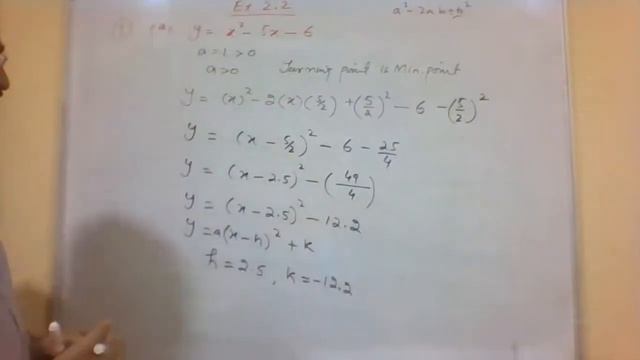 Ex 2.2
a²-2ab+b²
① (a) y = x² - 5x - 6
a = 1 > 0
a>0 Turning point is Min. point
y = (x)² - 2(x)(5/2) + (5/2)² - 6 - (5/2)²
y = (x - 5/2)² - 6 - 25/4
y = (x - 2.5)² - (49/4)
y = (x - 2.5)² - 12.2
y = a(x-h)² + k
h = 2.5, k = -12.2